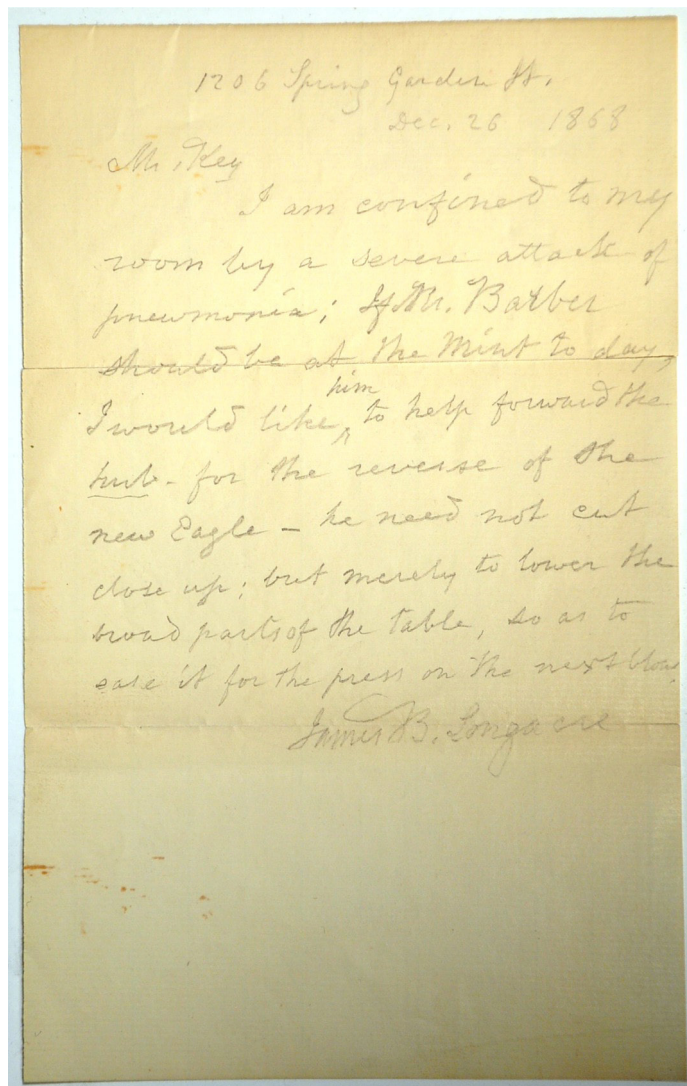 1206 Spring Garden St.
Dec. 26 1868
Mr. Key
I am confined to my
room by a severe attack of
pneumonia; If Mr. Barber
should be at the Mint to day,
him
I would like ^ to help forward the
hub - for the reverse of the
new Eagle - he need not cut
close up; but merely to lower the
broad parts of the table, so as to
ease it for the press on the next blow.
James B. Longacre